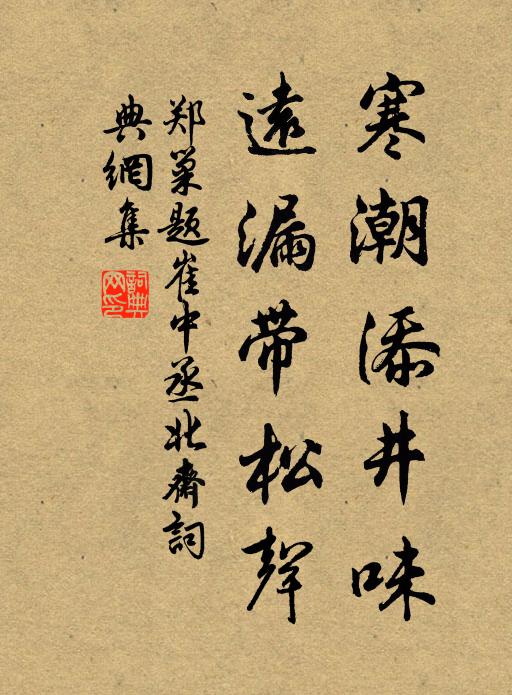 寒潮添井味
遠漏帶松聲
郑巢题崔中丞北齋詞
典網集
詞典網印